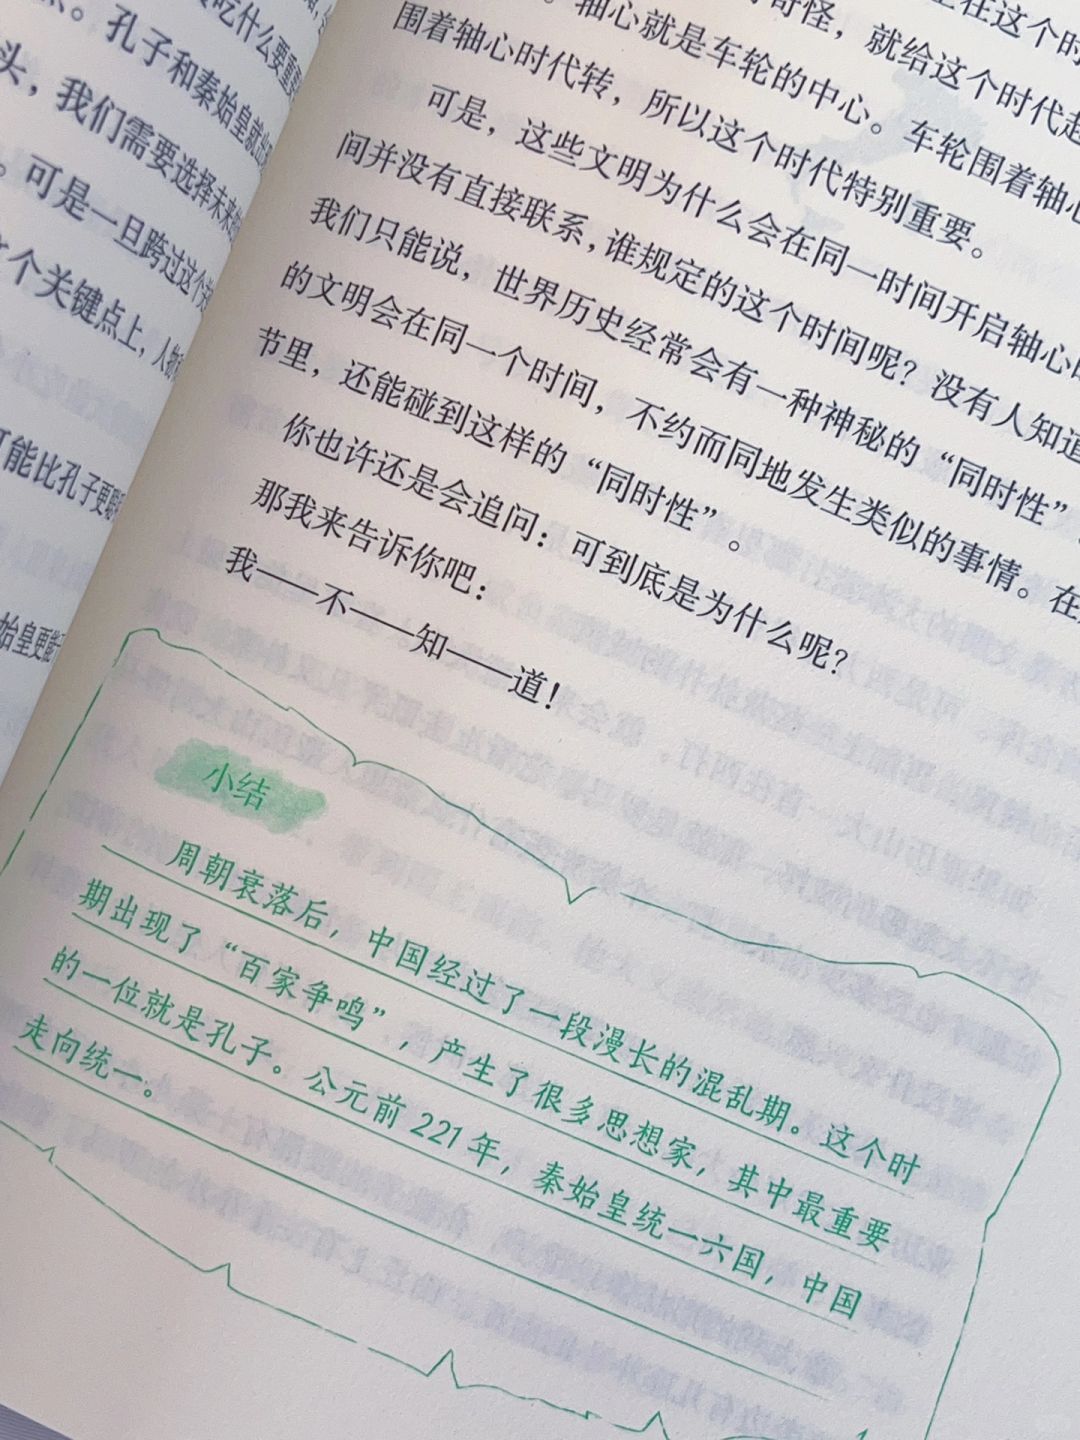 吃什么要重
点。孔子和秦始皇就
头，我们需要选择未来
。可是一旦跨过这个
个关键点上，人物
可能比孔子更聪
始皇更能
在这个时
奇怪，就给这个时代起
。轴心就是车轮的中心。车轮围着轴心
围着轴心时代转，所以这个时代特别重要。
可是，这些文明为什么会在同一时间开启轴心
间并没有直接联系，谁规定的这个时间呢？没有人知道
我们只能说，世界历史经常会有一种神秘的“同时性”，
的文明会在同一个时间，不约而同地发生类似的事情。在
节里，还能碰到这样的“同时性”。
你也许还是会追问：可到底是为什么呢？
那我来告诉你吧：
我——不——知——道！
小结
周朝衰落后，中国经过了一段漫长的混乱期。这个时
期出现了“百家争鸣”，产生了很多思想家，其中最重要
的一位就是孔子。公元前221年，秦始皇统一六国，中国
走向统一。